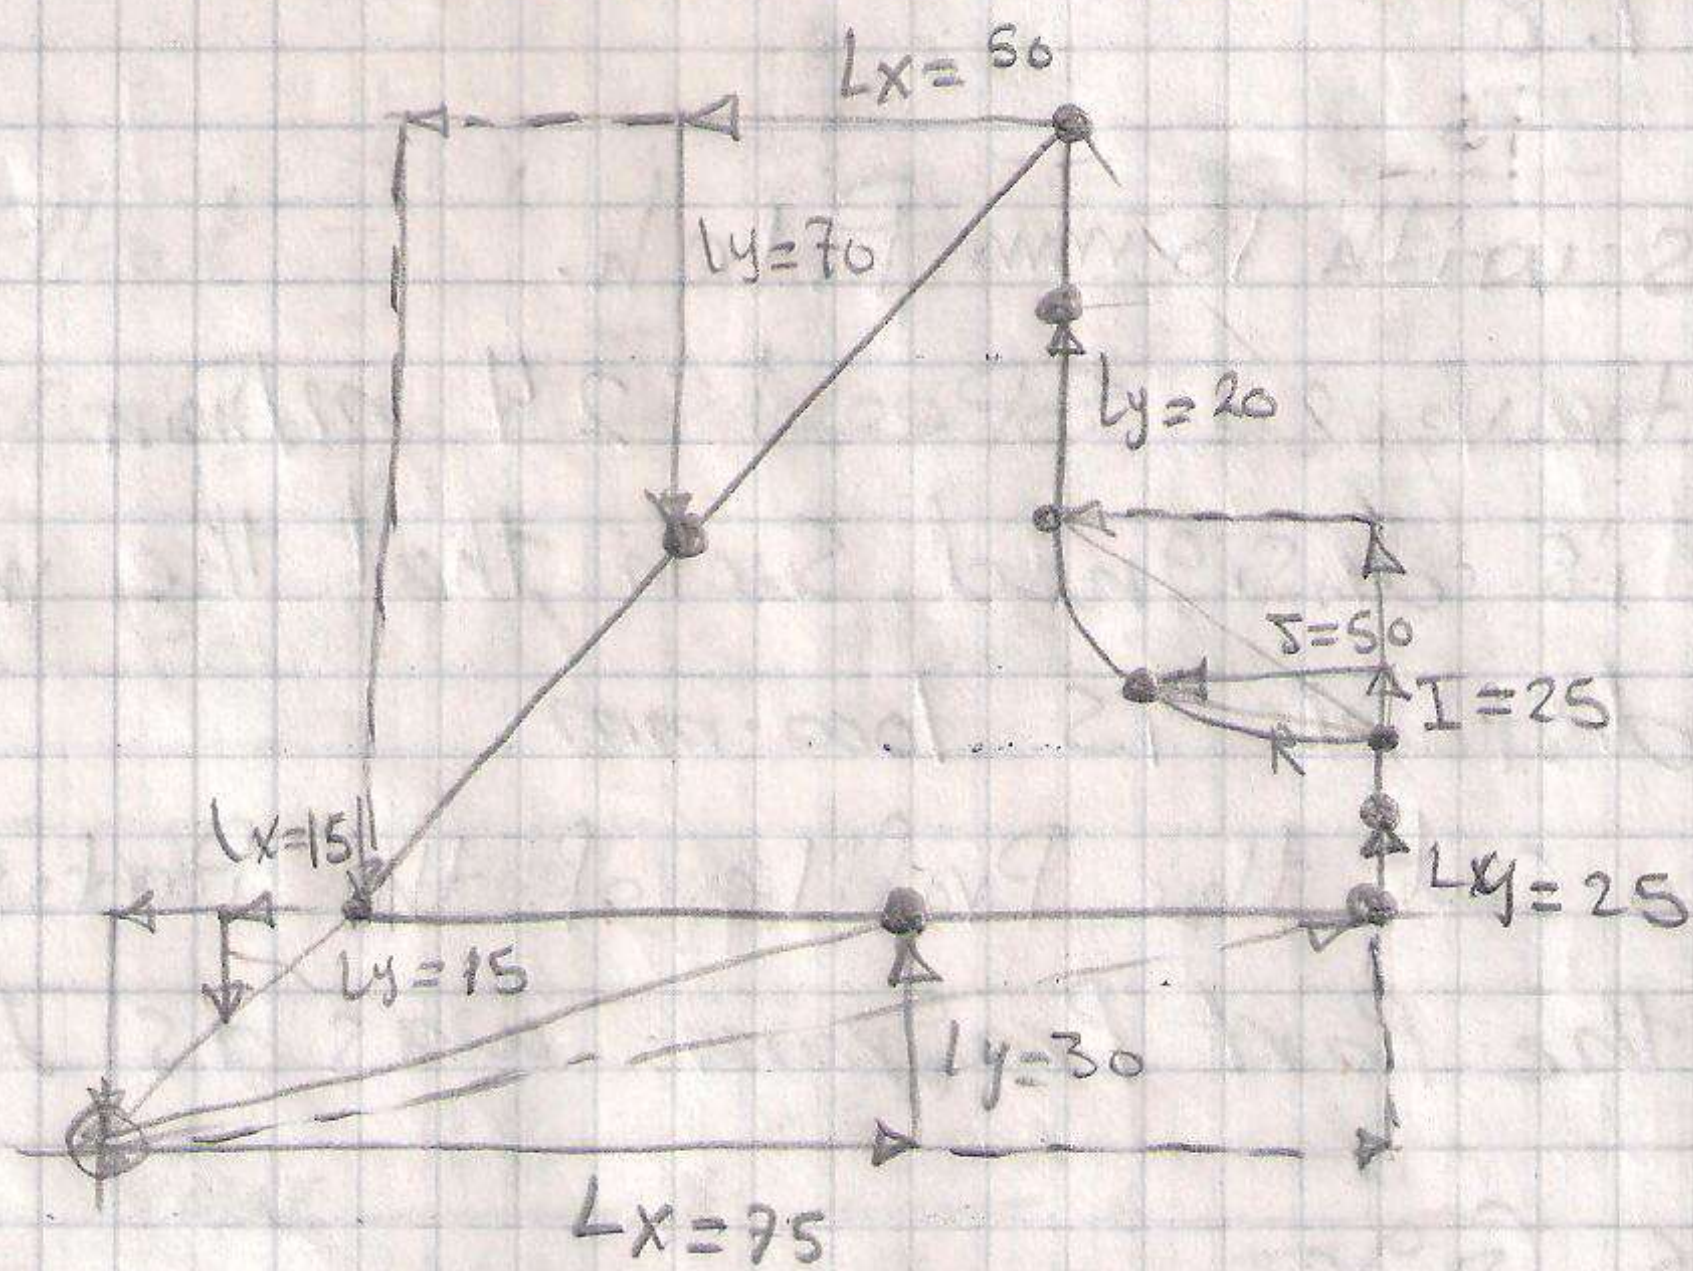 Lx= 50
ly=70
ly=20
J=50
I=25
R
lx=15
Lxy=25
ly=15
ly=30
Lx=75